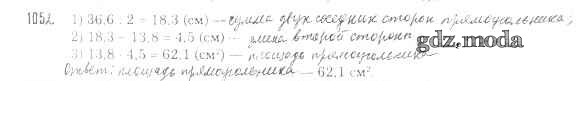 1052. 1) 36,6 : 2 = 18,3 (см) — сумма двух соседних сторон прямоугольника;
2) 18,3 – 13,8 = 4,5 (см) — длина второй стороны
gdz.moda
3) 13,8 · 4,5 = 62,1 (см²) — площадь прямоугольника
Ответ: площадь прямоугольника — 62,1 см².